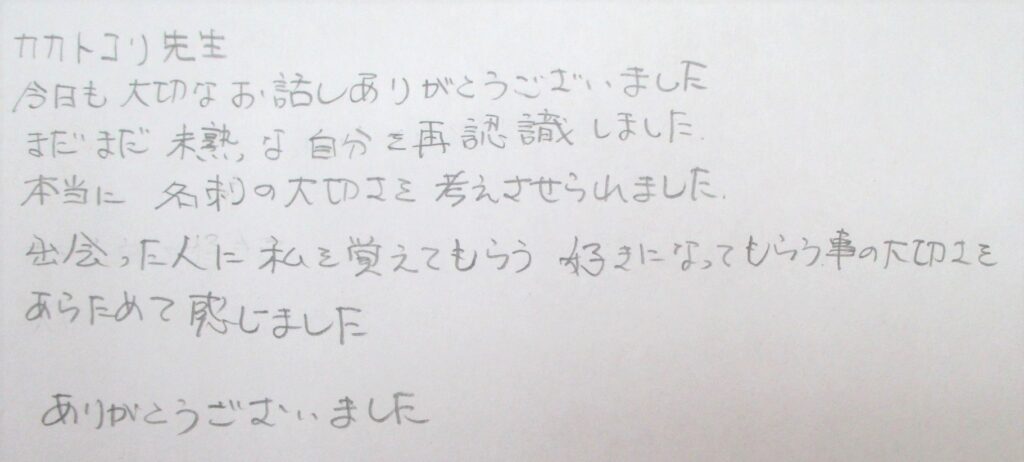 カカトコリ先生
今日も大切なお話しありがとうございました
まだまだ未熟な自分を再認識しました.
本当に 名刺の大切さを考えさせられました.
出会った人に私を覚えてもらう 好きになってもらう事の大切さを
あらためて感じました
ありがとうございました